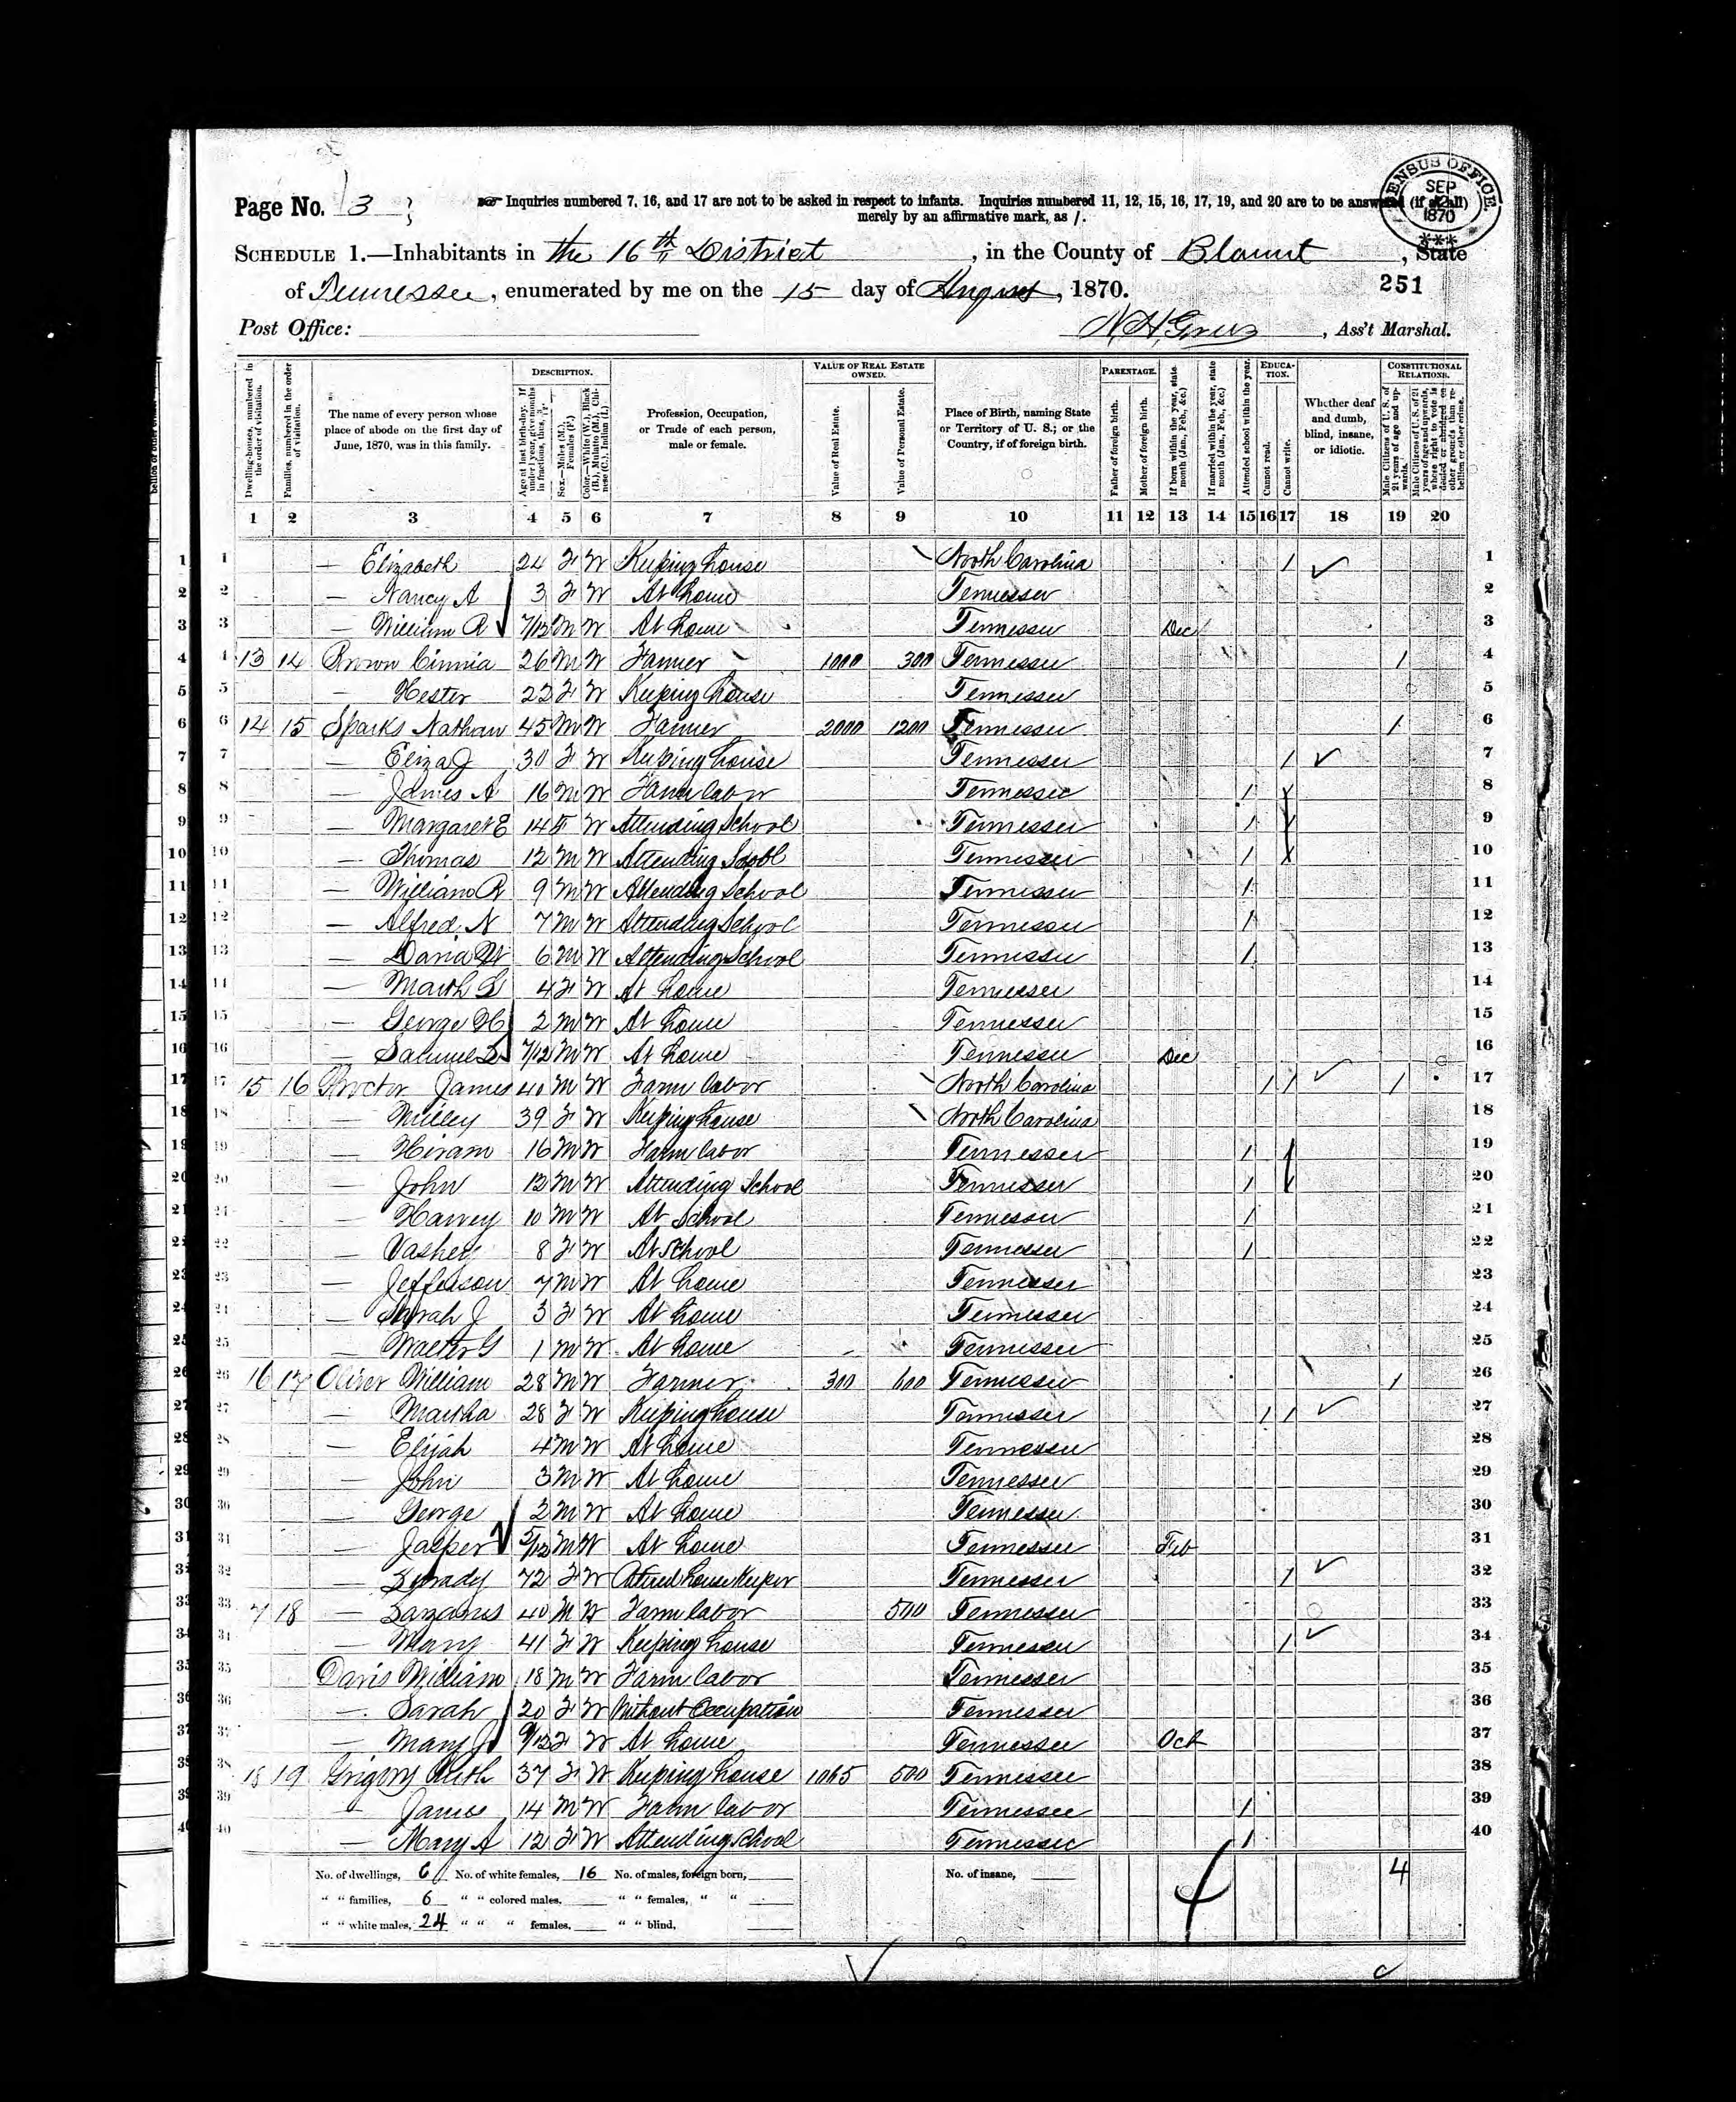 Page No. 3
Inquiries numbered 7, 16, and 17 are not to be asked in respect to infants. Inquiries numbered 11, 12, 15, 16, 17, 19, and 20 are to be answered (if at all)
merely by an affirmative mark, as /.
CENSUS OFFICE. SEP 12 1870 ***
SCHEDULE 1.—Inhabitants in the 16th District, in the County of Blount, State
251
of Tennessee, enumerated by me on the 15 day of August, 1870.
Post Office: , Ass't Marshal.
DESCRIPTION. VALUE OF REAL ESTATE OWNED. PARENTAGE. EDUCATION. CONSTITUTIONAL RELATIONS.
Dwelling-houses, numbered in the order of visitation.
Families, numbered in the order of visitation.
The name of every person whose place of abode on the first day of June, 1870, was in this family.
Age at last birth-day. If under 1 year, give months in fractions, thus, 3/12.
Sex.—Males (M.), Females (F.)
Color.—White (W.), Black (B.), Mulatto (M.), Chinese (C.), Indian (I.)
Profession, Occupation, or Trade of each person, male or female.
Value of Real Estate.
Value of Personal Estate.
Place of Birth, naming State or Territory of U. S.; or the Country, if of foreign birth.
Father of foreign birth.
Mother of foreign birth.
If born within the year, state month (Jan., Feb., &c.)
If married within the year, state month (Jan., Feb., &c.)
Attended school within the year.
Cannot read.
Cannot write.
Whether deaf and dumb, blind, insane, or idiotic.
Male Citizens of U. S. of 21 years of age and upwards.
Male Citizens of U. S. of 21 years of age and upwards, whose right to vote is denied or abridged on other grounds than rebellion or other crime.
1 2 3 4 5 6 7 8 9 10 11 12 13 14 15 16 17 18 19 20
1 — Elizabeth 24 F W Keeping house North Carolina / 1
2 — Nancy A 3 F W At home Tennessee 2
3 — William R 7/12 M W At home Tennessee Dec 3
4 13 14 Brown 26 M W Farmer 1000 300 Tennessee / 4
5 — Hester 22 F W Keeping house Tennessee 5
6 14 15 Sparks Nathan 45 M W Farmer 2000 1200 Tennessee / 6
7 — Eliza J 30 F W Keeping house Tennessee / 7
8 — James A 16 M W Farm labor Tennessee / / 8
9 — Margaret E 14 F W Attending School Tennessee / / 9
10 — Thomas 12 M W Attending School Tennessee / / 10
11 — William R 9 M W Attending School Tennessee / 11
12 — Alfred N 7 M W Attending School Tennessee / 12
13 — David W 6 M W Attending School Tennessee / 13
14 — 4 F W At home Tennessee 14
15 — George H 2 M W At home Tennessee 15
16 — Samuel 7/12 M W At home Tennessee Dec 16
17 15 16 Proctor James 40 M W Farm labor North Carolina / / / 17
18 — Milley 39 F W Keeping house North Carolina 18
19 — Hiram 16 M W Farm labor Tennessee / / 19
20 — John 12 M W Attending School Tennessee / / 20
21 — Harvey 10 M W At School Tennessee / 21
22 — Vashey 8 F W At School Tennessee / 22
23 — Jefferson 7 M W At home Tennessee 23
24 — Sarah J 3 F W At home Tennessee 24
25 — Walter G 1 M W At home Tennessee 25
26 16 17 Oliver William 28 M W Farmer 300 600 Tennessee / 26
27 — Martha 28 F W Keeping house Tennessee / / 27
28 — Elijah 4 M W At home Tennessee 28
29 — John 3 M W At home Tennessee 29
30 — George 2 M W At home Tennessee 30
31 — Jasper 5/12 M W At home Tennessee Feb 31
32 — 72 F W Retired house Keeper Tennessee / 32
33 7 18 — Lazarus 40 M W Farm labor 500 Tennessee 33
34 — Mary 41 F W Keeping house Tennessee / 34
35 Davis William 18 M W Farm labor Tennessee 35
36 — Sarah 20 F W Without Occupation Tennessee 36
37 — Mary J 9/12 F W At home Tennessee Oct 37
38 18 19 Grigory Ruth 37 F W Keeping house 1065 500 Tennessee 38
39 — James 14 M W Farm labor Tennessee / 39
40 — Mary A 12 F W Attending School Tennessee / 40
No. of dwellings, 6 No. of white females, 16 No. of males, foreign born, No. of insane, 4
" " families, 6 " " colored males, " " females, " "
" " white males, 24 " " " females, " " blind,